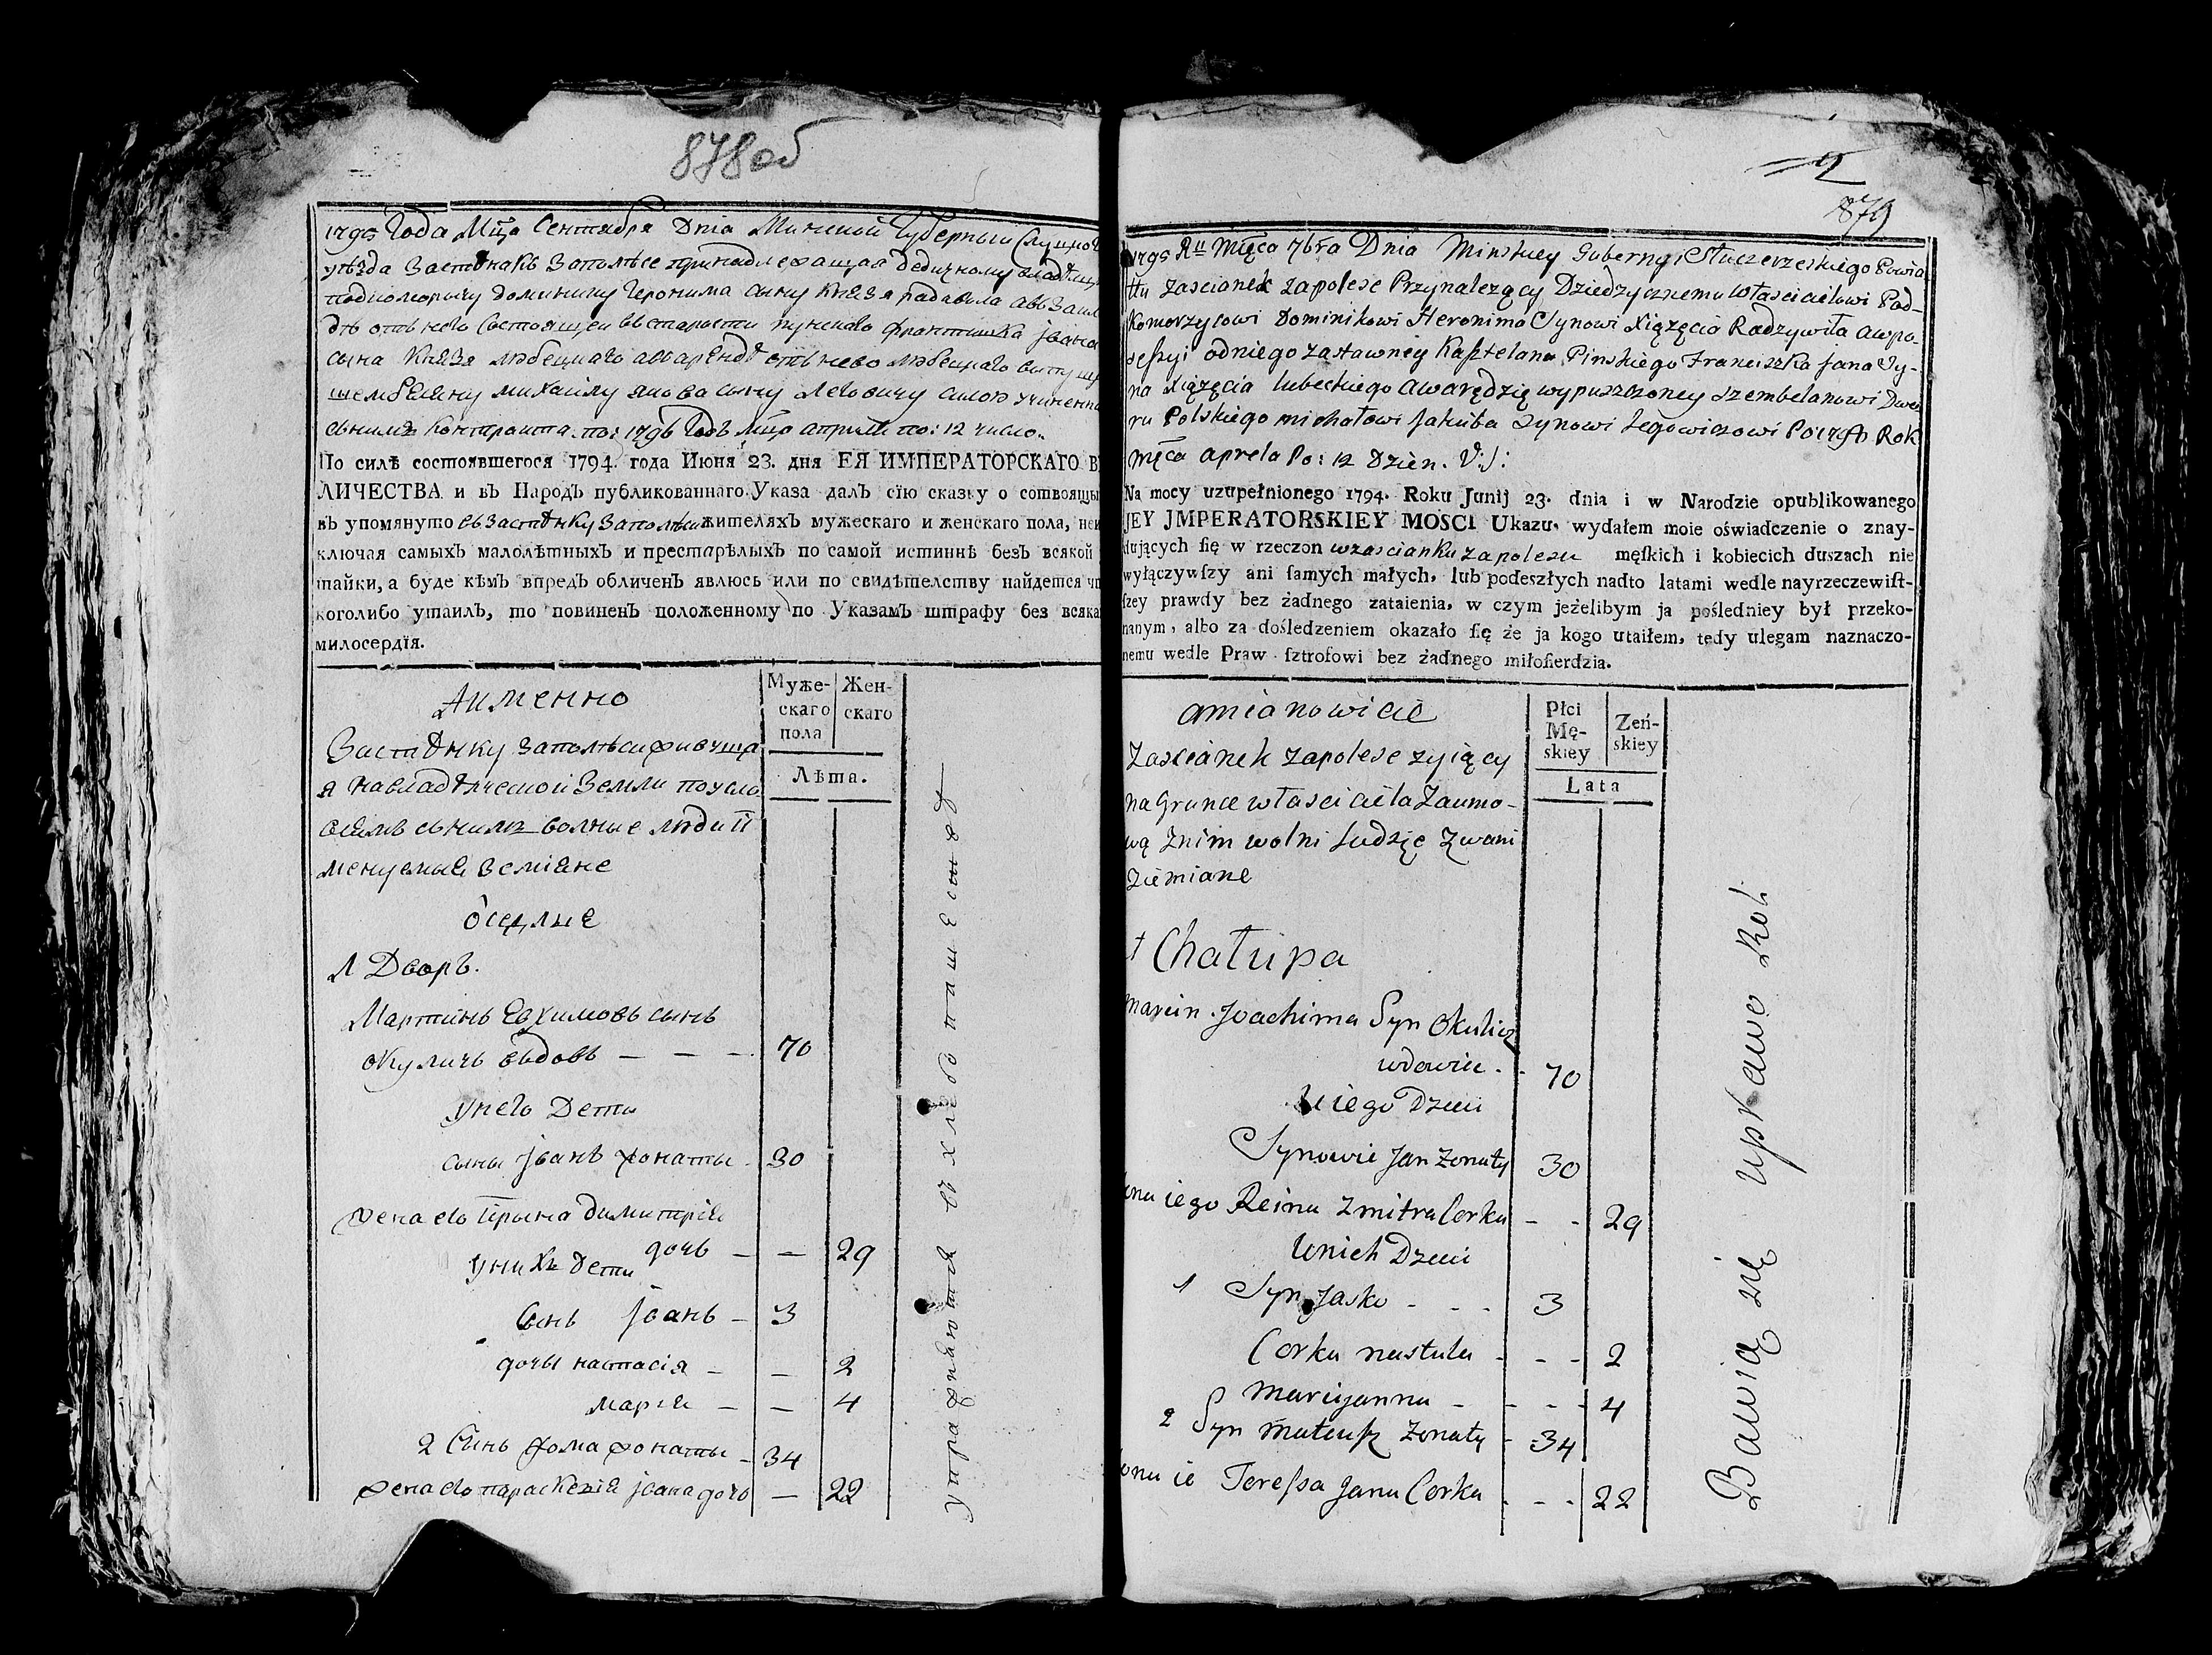 878об
1795 Года Мца Сентября Dня Минской Губерныи Слуцкого
уѣзда Застѣнакъ Заполѣсе принадлежащая дедичному владѣлцу
подкоморыму Доминику Геронима сыну Князя радивила авъ Заил
дѣ отъ него Состоящеи въ старости пунского францишка Јвана
сына Князя любецкаго аваренде отъ нево любецкаго выпущ
шембеляну михаилу якова сыну Леговичу силою учиненна
сънимъ Контракта по: 1796 Годъ Мцо априля по: 12 число.
По силѣ состоявшегося 1794. года Июня 23. дня ЕЯ ИМПЕРАТОРСКАГО В
ЛИЧЕСТВА и въ Народъ публикованнаго Указа далъ сїю сказку о сотвоящы
въ упомянуто въ Застѣнку Заполѣси жителяхъ мужескаго и женскаго пола, неи
ключая самыхъ малолѣтныхъ и престарѣлыхъ по самой истиннѣ безъ всякой
тайки, а буде кѣмъ впредъ обличенъ явлюсь или по свидѣтелству найдется чт
коголибо утаилъ, то повиненъ положенному по Указамъ штрафу без всяка
милосердїя.
Аименно
Муже-
скаго
пола
Жен-
скаго
Лѣта.
Застѣнку заполѣси живуща
я навладѣлческой Земли по усло
виямъ сънимъ волные люди и
менуемыя Земіяне
осѣдлые
1 Дворъ.
Мартинъ Евхимовъ сынъ
окуличъ вдовъ — — — 70
унего Дети
сыны Јванъ жонаты - 30
жена его Ірына димитрія
дочь — — 29
унихъ дети
Сынъ Јванъ — 3
дочы настасія — — 2
марія — — 4
2 Сынъ фома жонаты — 34
жена его параскевія Јвана дочь — 22
упражняются въ хлебопашесныѣ
2
879
1795 Ru Mięca 7bra Dnia Minskiey Gubernyi Słuczerzeskiego Powia
ttu Zascianek Zapolese Przynalezący Dziedzycznemu Własccicielowi Pod-
Komorzycowi Dominikowi Heronima Synowi Xiązęcia Radzywiła awpo-
sessyi odniego zastawney Kasztelana Pinskiego Franciszka Jana Sy-
na Xiązęcia lubeckiego awarędzię wypuszczoney Szembelanowi Dwo
ru Polskiego michałowi Jakuba Synowi Legowiczowi Po 1796 Rok
Męca aprela Po: 12 Dzien. V:S:
Na mocy uzupełnionego 1794. Roku Junij 23. dnia i w Narodzie opublikowanego
JEY JMPERATORSKIEY MOSCI Ukazu, wydałem moie oświadczenie o znay-
duiących się w rzeczon wzascianku zapolesu męskich i kobiecich duszach nie
wyłączywszy ani samych małych, lub podeszłych nadto latami wedle nayrzeczewist-
szey prawdy bez żadnego zataienia, w czym jeżelibym ja pośledniey był przeko-
nanym, albo za dośledzeniem okazało się że ja kogo utaiłem, tedy ulegam naznaczo-
nemu wedle Praw sztrofowi bez żadnego miłosierdzia.
amianowicie
Płci
Mę-
skiey
Zeń-
skiey
Lata
Zascianek zapolese zyiący
na Grunce własciciela Zaumo-
wą Znim wolni Ludzię Zwani
Ziemiane
1 Chałupa
Marcin Joachima Syn Okulicz
wdowiec - 70
u iego Dzieci
Synowie Jan Zonaty 30
ona iego Reina Zmitra Corka - - 29
Unich Dzieci
1 Syn Jasko - - - 3
Corka nastula - - - 2
maryanna - - - - 4
2 Syn mateusz Zonaty - 34
ona ie Teressa Jana Corka - - - 22
Bawią się uprawo Roli